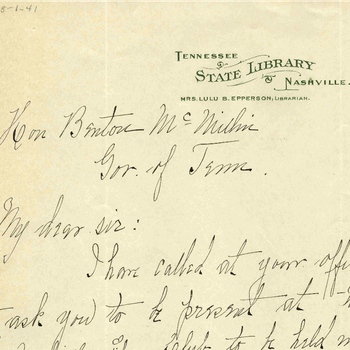 8-1-41
TENNESSEE
STATE LIBRARY
NASHVILLE.
MRS. LULU B. EPPERSON, LIBRARIAN.
Hon Benton McMillin
Gov. of Tenn.
My dear sir:
I have called at your offi
ask you to be present at
Club to be held